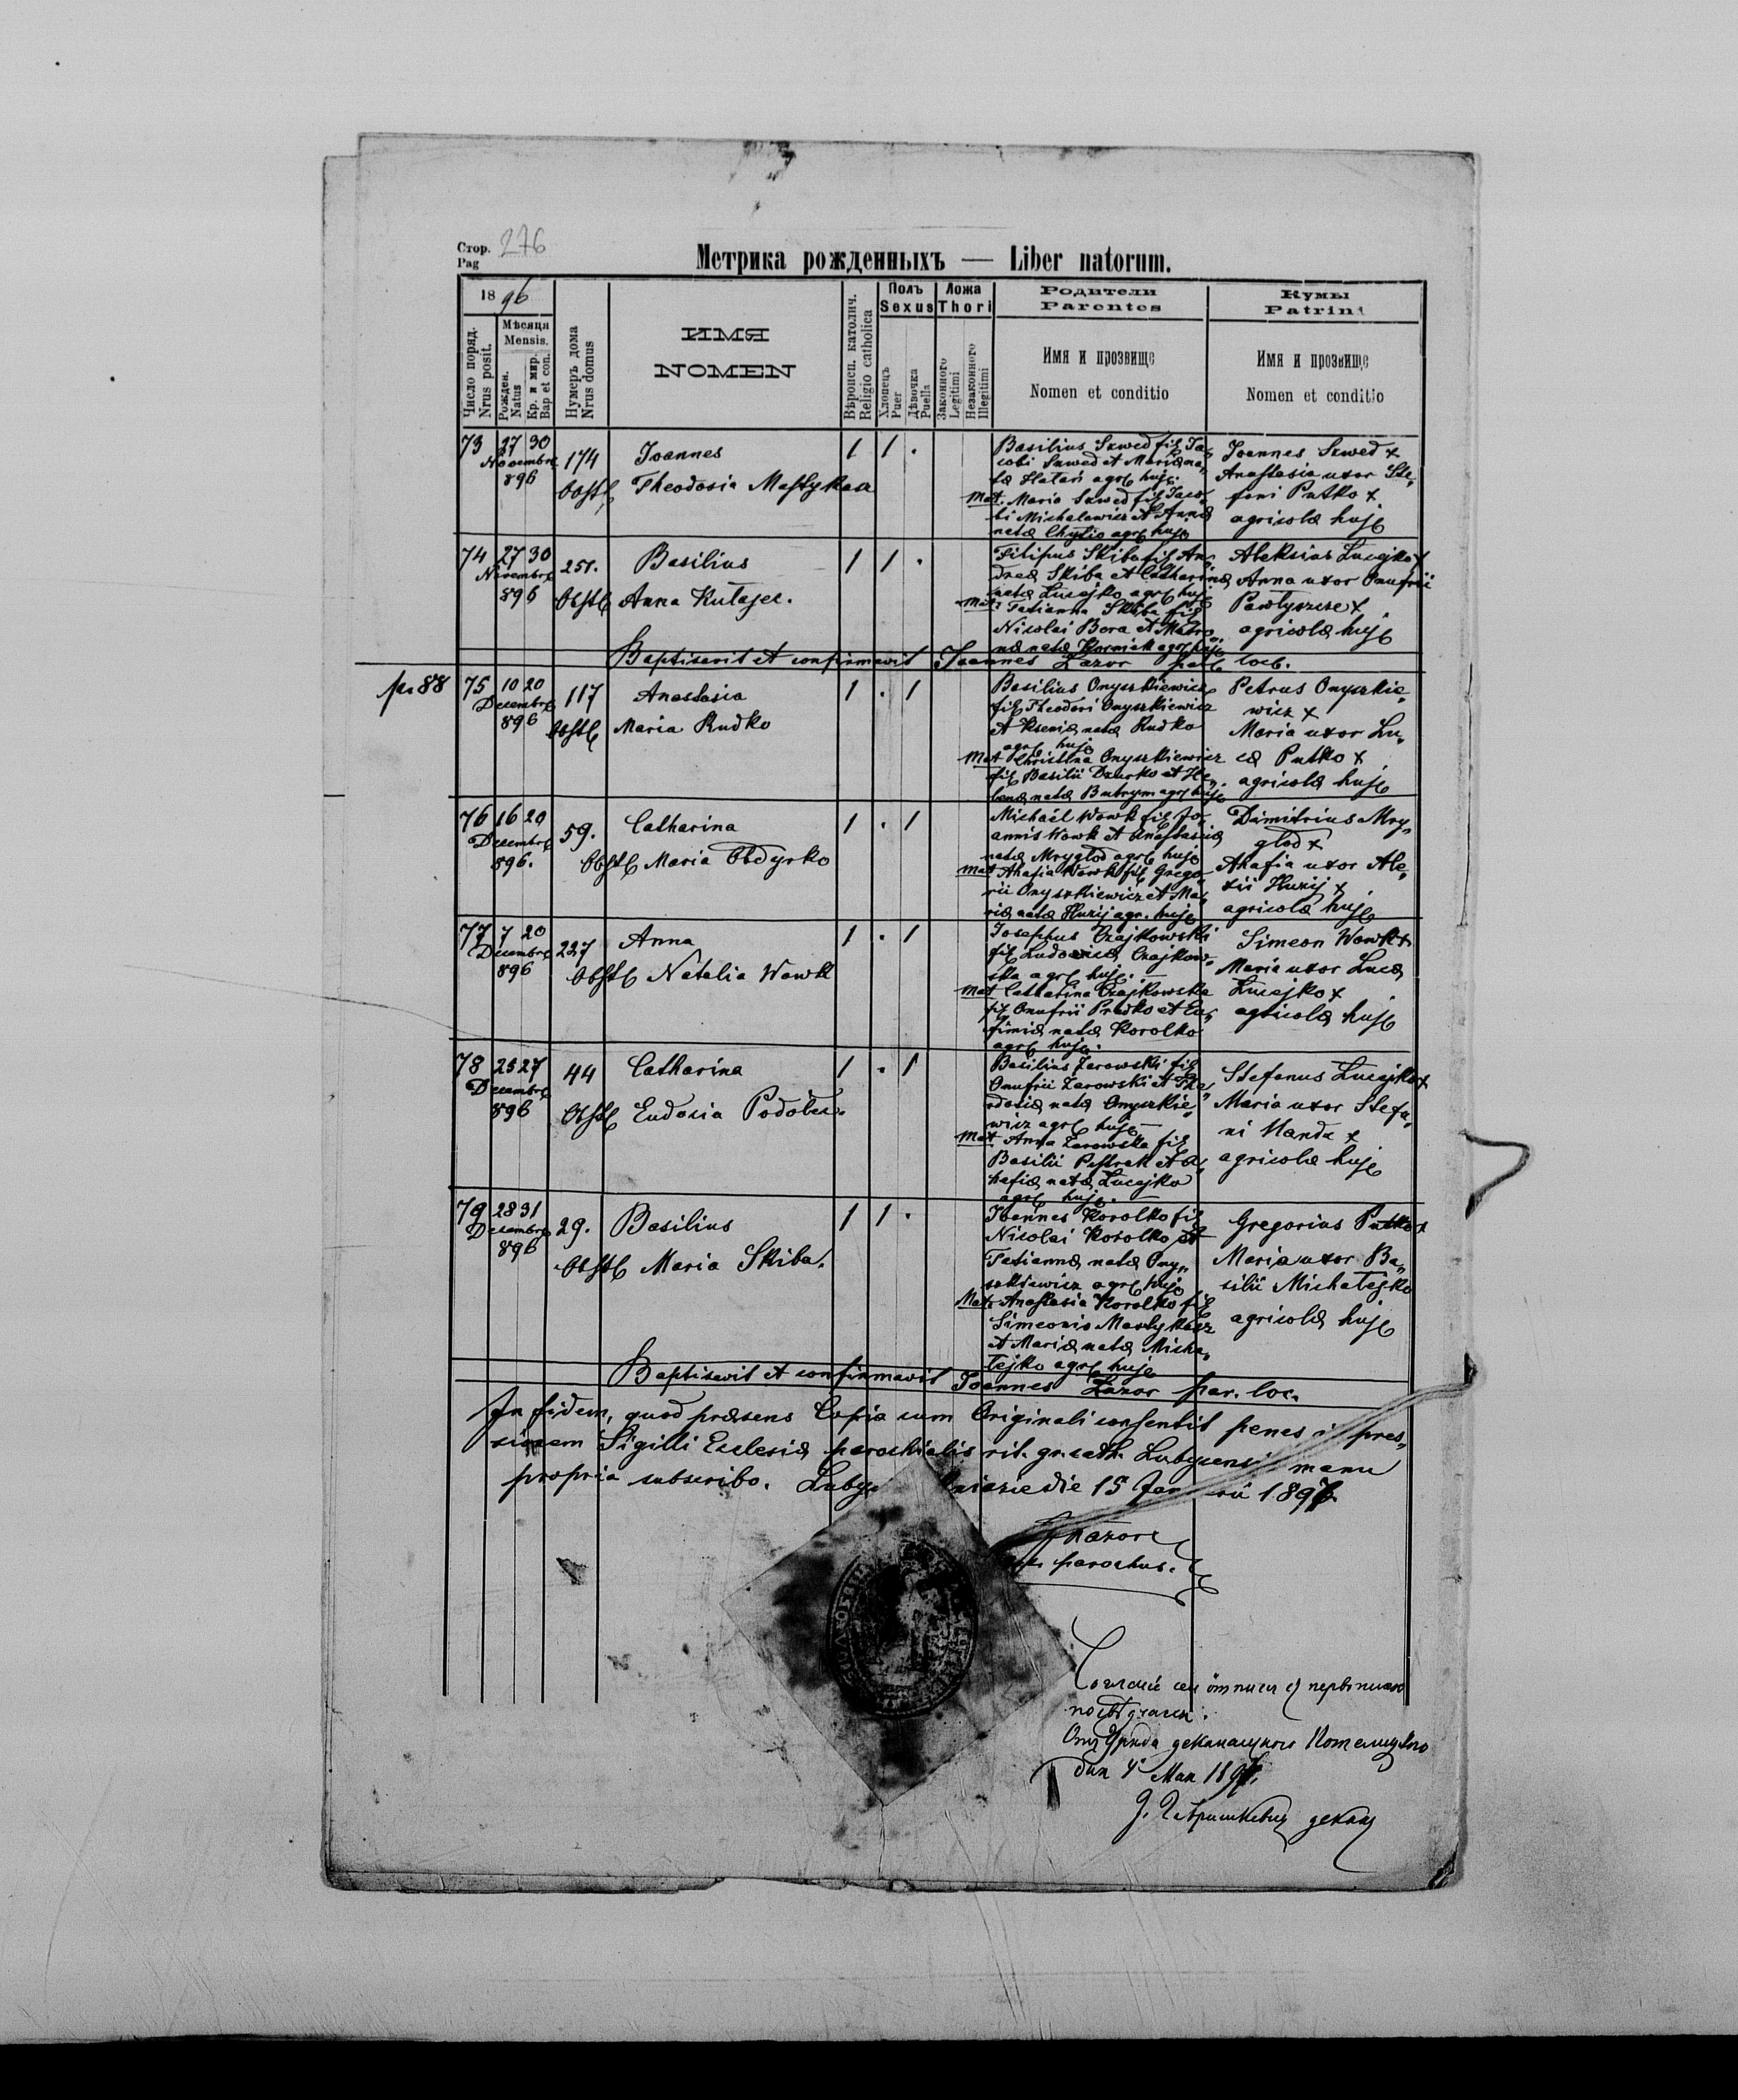 Стор. 276
Pag
Метрика рожденныхъ — Liber natorum.
18 96
Число поряд.
Nrus posit.
Мѣсяця
Mensis.
Рожден.
Natus
Кр. и мир.
Bap et con.
Нумеръ дома
Nrus domus
ИМЯ
NOMEN
Вѣроисп. католич.
Religio catholica
Полъ
Sexus
Хлопець
Puer
Дѣвочка
Puella
Ложа
Thori
Законного
Legitimi
Незаконного
Illegitimi
Родители
Parentes
Имя и прозвище
Nomen et conditio
Кумы
Patrini
Имя и прозвище
Nomen et conditio
73 27 30
Novembr
896
174
Joannes
Obst Theodosia
1 1 .
Basilius Szwed fil Ja„
cobi Szwed et Mariæ na„
tæ agr huj.
Mat. Maria Szwed fil Jaco„
bi Michalewicz et Annæ
natæ agr huj
Joannes Szwed x
Anastasia uxor Ste„
fani Putko x
agricolæ huj
74 27 30
Novembr
896
251.
Basilius
Obst Anna Kutajec.
1 1 .
Filipus Skiba fil An„
dreæ Skiba et Catharinæ
natæ Lucejko agr huj
Mat. Tatianna Skiba fil
Nicolai Bora et Matro„
næ natæ agr huj
Aleksius Lucejko x
Anna uxor Onufrii
Pawłyszcze x
agricolæ huj
Baptisavit et confirmavit Joannes Lazor par loc.
p. 88
75 10 20
Decembr
896
117
Anastasia
Obst Maria Rudko
1 . 1
Basilius Onyszkiewicz
fil Theodori Onyszkiewicz
et Kseniæ natæ Rudko
agr huj
Mat Christina Onyszkiewicz
fil Basilii Dziurko et He„
lenæ natæ Butrym agr huj
Petrus Onyszkie„
wicz x
Maria uxor Lu„
cæ Putko x
agricolæ huj
76 16 20
Decembr
896.
59.
Catharina
Obst Maria Obdyrko
1 . 1
Michaël Wowk fil Jo„
annis Wowk et Anastasiæ
natæ Mryglod agr huj
Mat Ahafia Wowk fil Grego„
rii Onyszkiewicz et Ma„
riæ natæ Huzij agr. huj
Dimitrius Mry„
glod x
Ahafia uxor Ale„
xii Huzij x
agricolæ huj
77 7 20
Decembr
896
227
Anna
Obst Natalia Wowk
1 . 1
Josephus Czajkowski
fil Ludovicæ Czajkow„
ska agr huj. —
Mat Catharina Czajkowska
fil Onufrii et Eu„
fimiæ natæ Korolko
agr huj.
Simeon Wowk x
Maria uxor Lucæ
Lucejko x
agricolæ huj
78 25 27
Decembr
896
44
Catharina
Obst Eudosia
1 . 1
Basilius Zarowski fil
Onufrii Zarowski et The„
odosiæ natæ Onyszkie„
wicz agr huj —
Mat Anna Zarowska fil
Basilii Pastrak et A„
hafiæ natæ Lucejko
agr huj. —
Stefanus Lucejko x
Maria uxor Stefa„
ni Handz x
agricolæ huj
79 28 31
Decembr
896
29.
Basilius
Obst Maria Skiba.
1 1 .
Joannes Korolko fil
Nicolai Korolko et
Tatiannæ natæ Ony„
szkiewicz agr huj
Mat. Anastasia Korolko fil
Simeonis
et Mariæ natæ Micha„
lejko agr huj
Gregorius Putko x
Maria uxor Ba„
silii Michałejko
agricolæ huj
Baptisavit et confirmavit Joannes Lazor par. loc.
In fidem, quod præsens Copia cum Originali consentit penes pres„
sionem Sigilli Eclesiæ parochialis rit. gr. cath. Lubycensis manu
propria subscribo. die 15 1897
parochus.
дня 4 Мая 1897